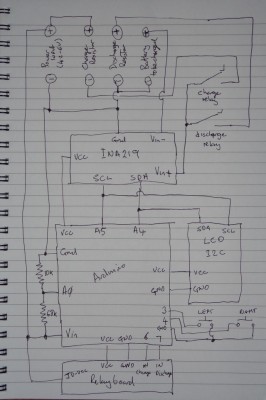 Power
Charge
Resistor
Discharge
Resistor
Battery
to be charged
charge
relay
discharge
relay
Gnd
Vin-
INA219
Vin+
VCC
SCL
SDA
VCC
A5
A4
SDA
SCL
LCD
I2C
Gnd
Arduino
VCC
VCC
10K
A0
GND
GND
Vin
VCC
GND
6
7
LEFT
RIGHT
JD-VCC
VCC
GND
IN
Charge
IN
Discharge
Relay board